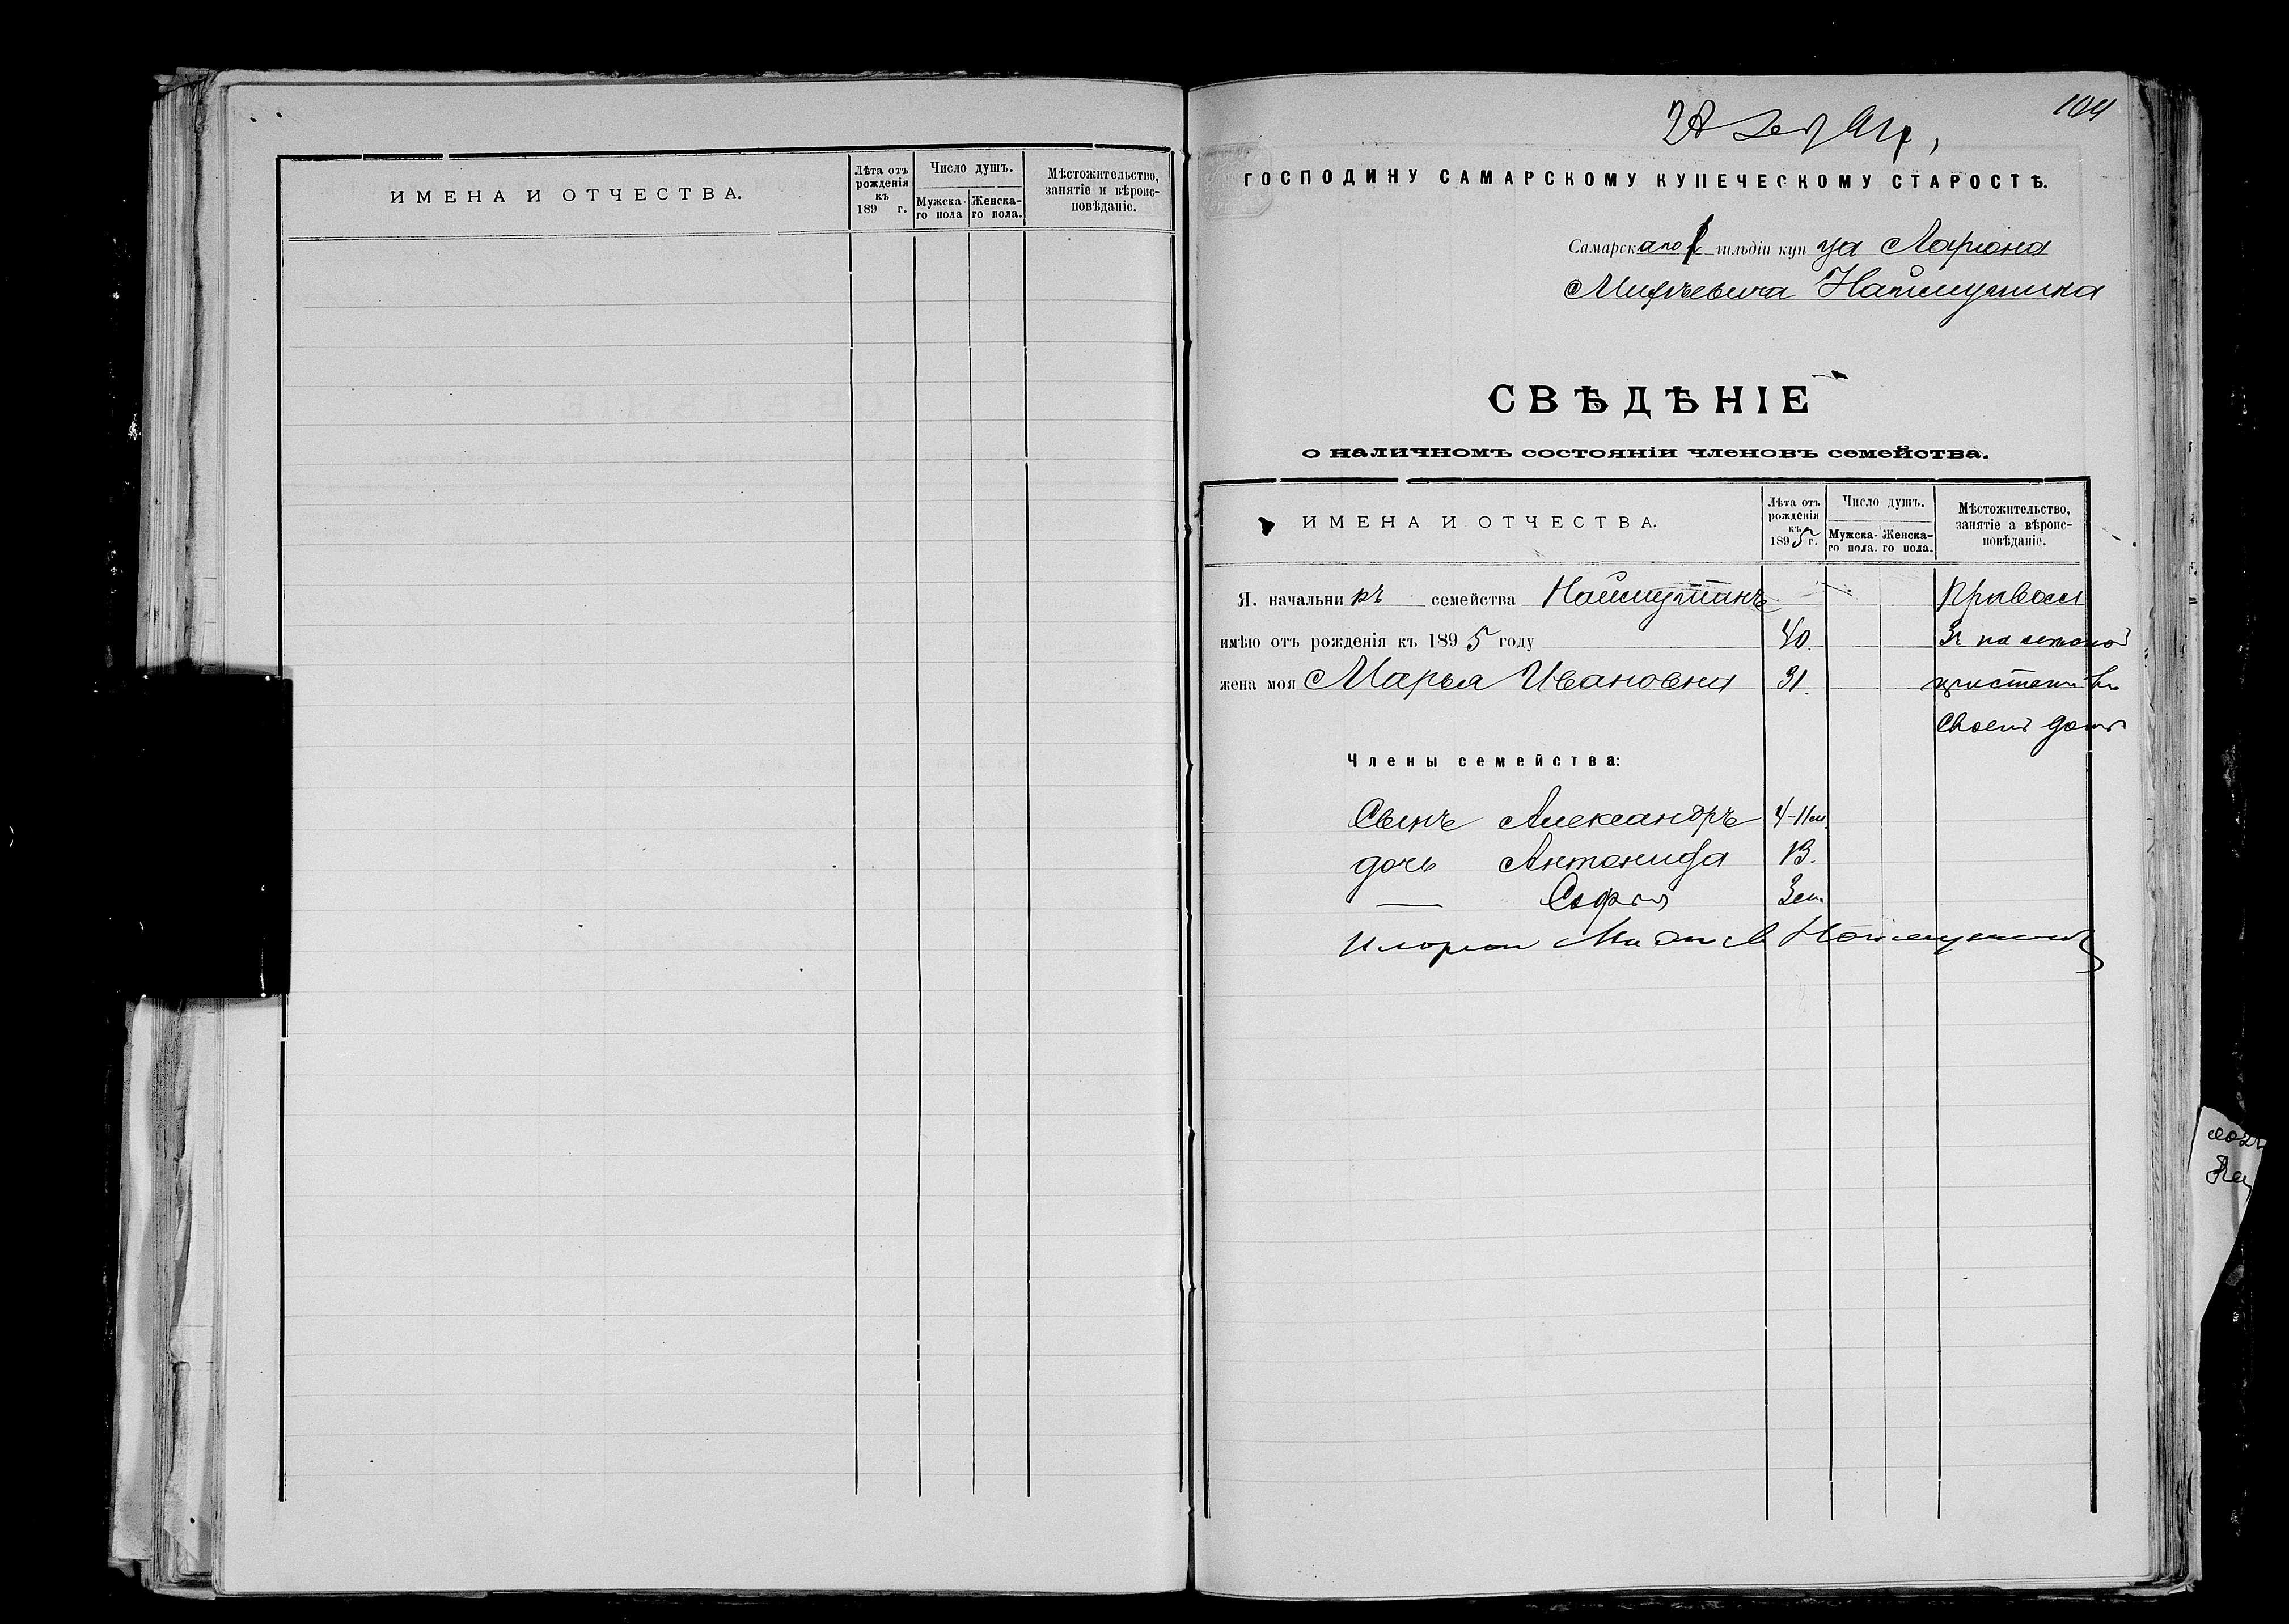 ИМЕНА И ОТЧЕСТВА.
Лѣта отъ рожденія къ 189 г.
Число душъ.
Мужска-го пола
Женска-го пола.
Мѣстожительство, занятіе и вѣроис-повѣданіе.
104
ГОСПОДИНУ САМАРСКОМУ КУПЕЧЕСКОМУ СТАРОСТѢ.
Самарскаго 2 гильдіи купца Ларіона
Михѣевича Наймушина
СВѢДѢНІЕ
о наличномъ состояніи членовъ семейства.
ИМЕНА И ОТЧЕСТВА.
Лѣта отъ рожденія къ 1895 г.
Число душъ.
Мужска-го пола.
Женска-го пола.
Мѣстожительство, занятіе а вѣроис-повѣданіе.
Я. начальникъ семейства Наймушинъ
имѣю отъ рожденія къ 1895 году 40.
жена моя Марья Ивановна 31.
своемъ домѣ
Члены семейства:
Сынъ Александръ 4-11м.
дочь Антонида 13.
— Софья 3м.
Наймушинъ